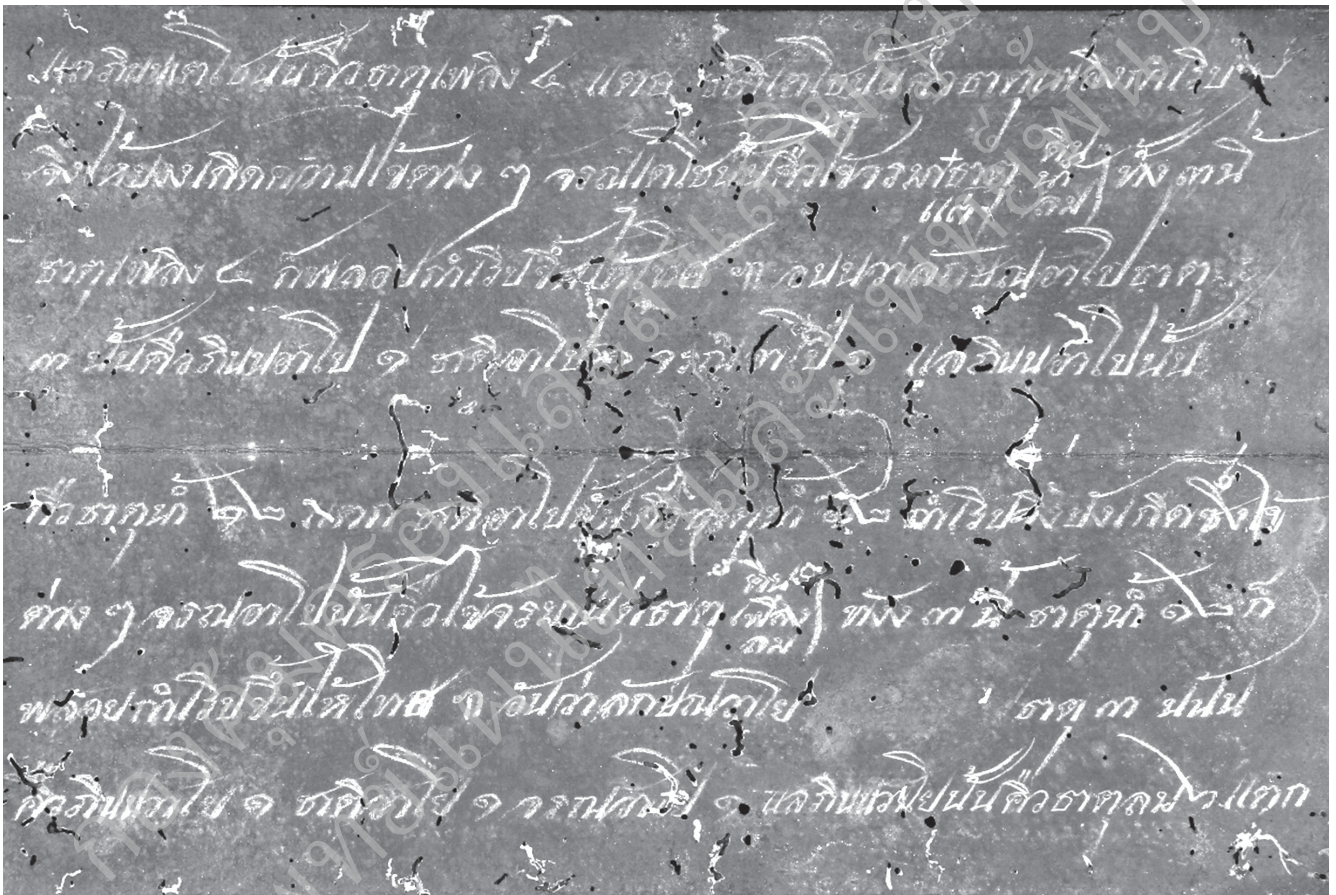 แลภินนเตโชนั้นคือธาตุเพลิง ๔ แตก ชาติเตโชนั้นคือธาตุเพลิงกำเริบ
จึงให้บังเกิดความไข้ต่าง ๆ จรณเตโชนั้นคือไข้จรมาแต่ธาตุ ดิน น้ำ ลม ทั้ง ๓ นี้
ธาตุเพลิง ๔ ก็พลอยกำเริบขึ้นให้โทษ ฯ อันว่าลักษณอาโปธาตุ
๓ นั้นคือภินนอาโป ๑ ชาติอาโป ๑ จรณอาโป ๑ แลภินนอาโปนั้น
คือธาตุน้ำ ๑๒ แตก ชาติอาโปนั้นคือธาตุน้ำ ๑๒ กำเริบจึงบังเกิดซึ่งไข้
ต่าง ๆ จรณอาโปนั้นคือไข้จรมาแต่ธาตุ ดิน เพลิง ลม ทั้ง ๓ นี้ ธาตุน้ำ ๑๒ ก็
พลอยกำเริบขึ้นให้โทษ ฯ อันว่าลักษณวาโย ธาตุ ๓ นั้น
คือภินนวาโย ๑ ชาติวาโย ๑ จรณวาโย ๑ แลภินนวาโยนั้นคือธาตุลม แตก